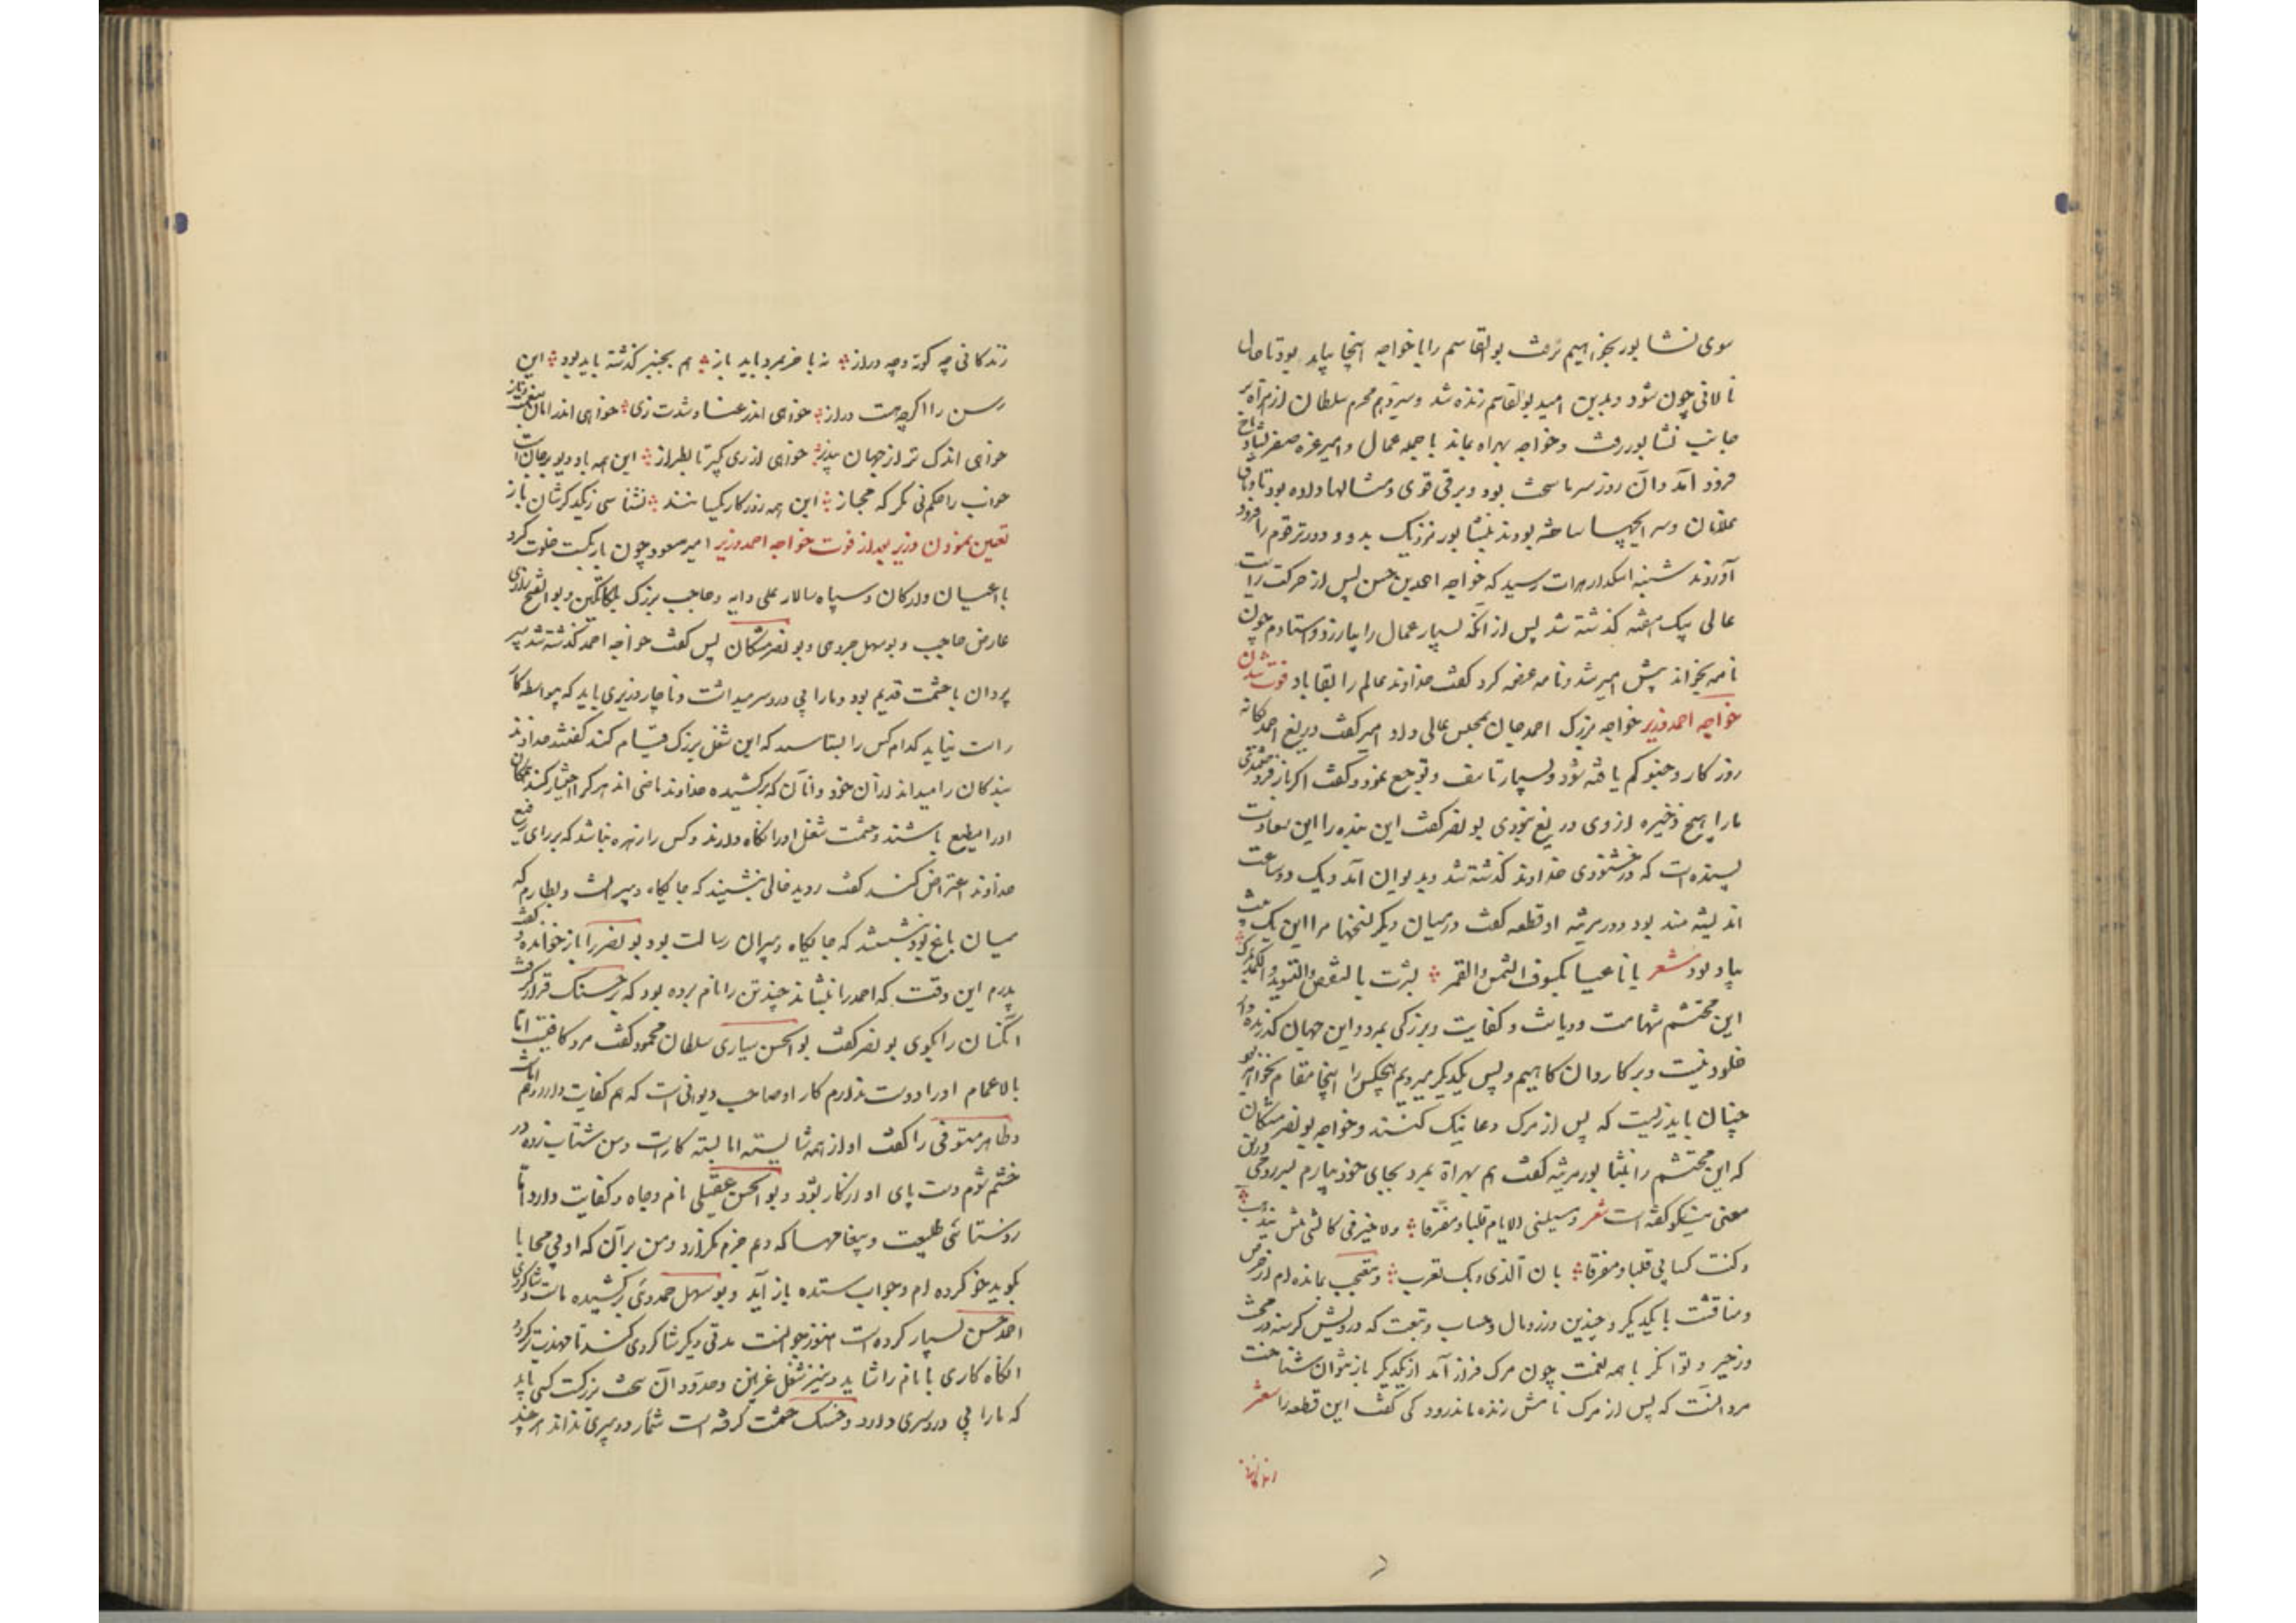 سوی نشابور بخواهیم رفت بوالقاسم را با خواجه اینجا بباید بود تا حال
نالانی چون شود و بدین امید بوالقاسم زنده شد و سیزدهم محرم سلطان از هراة بر
جانب نشابور رفت و خواجه بهراه بماند با جمله عمال و امیر غره صفر بشادیاخ
فرود آمد و آن روز سرما سخت بود و برفی قوی و مثالها داده بود تا وثاق
غلامان و سرایچها ساخته بودند بنشابور نزدیک بدو و دورتر قوم را فرود
آوردند شنبه اسکدار هرات رسید که خواجه احمد بن حسن پس از حرکت رایت
عالی بیک هفته گذشته شد پس از آنکه بسیار عمال را بیازرد و استادم چون
نامه بخواند پیش امیر شد و نامه عرضه کرد گفت خداوند عالم را بقا باد فوت شدن
خواجه احمد وزیر خواجه بزرگ احمد جان بمجلس عالی داد امیر گفت دریغ احمد یگانه
روزگار و چنو کم یافته شود و بسیار تاسف و توجع نمود و گفت اگر باز فروختندی
ما را هیچ ذخیره از وی دریغ نبودی بونصر گفت این بنده را این سعادت
بسنده است که در خشنودی خداوند گذشته شد و بدیوان آمد و یک دو ساعت
اندیشه مند بود و در مرثیه او قطعه گفت در میان دیگر نسخها مرا این یک بیت
بیاد بود شعر یا ناعیا بکسوف الشمس والقمر بشرت بالنقص والتسوید والکمد
این محتشم شهامت و دیانت و کفایت و بزرگی بمرد و این جهان گذرنده دار
خلود نیست و بر کاروان گاهیم و پس یکدیگر میرویم هیچکس را اینجا مقام نخواهد بود
چنان باید زیست که پس از مرگ دعا نیک کنند و خواجه بونصر مشکان
که این محتشم را بنشابور مرثیه گفت هم بهراة بمرد بجای خود بیارم پسر رومی درین
معنی نیکو گفته است شعر
وکنت کسابی قلبا و مفرقا بان الذی بک تعرب و متعجب بمانده ام از حرص
و مناقشت با یکدیگر و چندین وزر و مال و حساب و تبعت که درویش گرسنه در محنت
و زحیر و توانگر با همه نعمت چون مرگ فراز آمد از یکدیگر بازنتوان شناخت
مرد آنست که پس از مرگ نامش زنده ماند رودکی گفت این قطعه را شعر
زندگانی
زندگانی چه کوته و چه دراز نه باخر بمرد باید باز هم بچنبر گذشته باید بود این
رسن را اگر چه هست دراز خواهی اندر عنا و شدت زی خواهی اندر امان بنعمت و ناز
خواهی اندک تر از جهان بپذیر خواهی از ری گیر تا بطراز این همه باد دیو بر جان است
خواب را حکم نی مگر که مجاز این همه روز کار یکسانند نشناسی ز یکدگرشان باز
تعین نمودن وزیر بعد از فوت خواجه احمد وزیر امیر مسعود چون بار بگسست خلوت کرد
با اعیان و ارکان و سپاه سالار علی دایه و حاجب بزرگ بلکاتکین و بوالفتح رازی
عارض حاجب و بوسهل حمدوی و بونصر مشکان پس گفت خواجه احمد گذشته شد پیر
پردان با حشمت قدیم بود و ما را بی دردسر میداشت و ناچار وزیری باید که بیواسطه کار
راست نیاید کدام کس را شناسید که این شغل بزرگ قیام کند گفتند خداوند
بندگان را میداند از آن خود و آنان که برکشیده خداوند ماضی اند هر کرا اختیار کند همگان
او را مطیع باشند و حشمت شغل او را نگاه دارند و کس را زهره نباشد که بر رای رفیع
خداوند اعتراض کند گفت روید خالی بنشینید که جایگاه دبیرانست و بطارم که
میان باغ بود بنشستند که جایگاه دبیران رسالت بود بونصر را باز خوانده و گفت
پدرم این وقت که احمد را بنشاند چند تن را نام برده بود که بر حسنک قرار گرفت
آنکسان را بگوی بونصر گفت بوالحسن سیاری سلطان محمود گفت مرد کافیست اما
بالا عمامه او را دوست ندارم کار او صاحب دیوانیست که هم کفایت دارد و هم امانت
و طاهر مستوفی را گفت او از همه شایسته اما بسته کار است و من شتاب زده در
خشم شوم دست پای او از کار بشود و بوالحسن عقیلی نام و جاه و کفایت دارد اما
روستائی طبیعت و پیغامها که دهم جزم نگزارد و من بر آن که او بی محابا
بگوید خو کرده ام و جواب ستده باز آید و بوسهل حمدوی برکشیده ماست و شاگردی
احمد حسن بسیار کرده است هنوز جوانست مدتی دیگر شاگردی کند تا مهذب تر گردد
آنگاه کاری با نام را شاید و نیز شغل غزنین و حدود آن سخت بزرگست کسی باید
که ما را بی دردسری دارد و حسنک حشمت گرفته است شمار و دبیری نداند هر چند